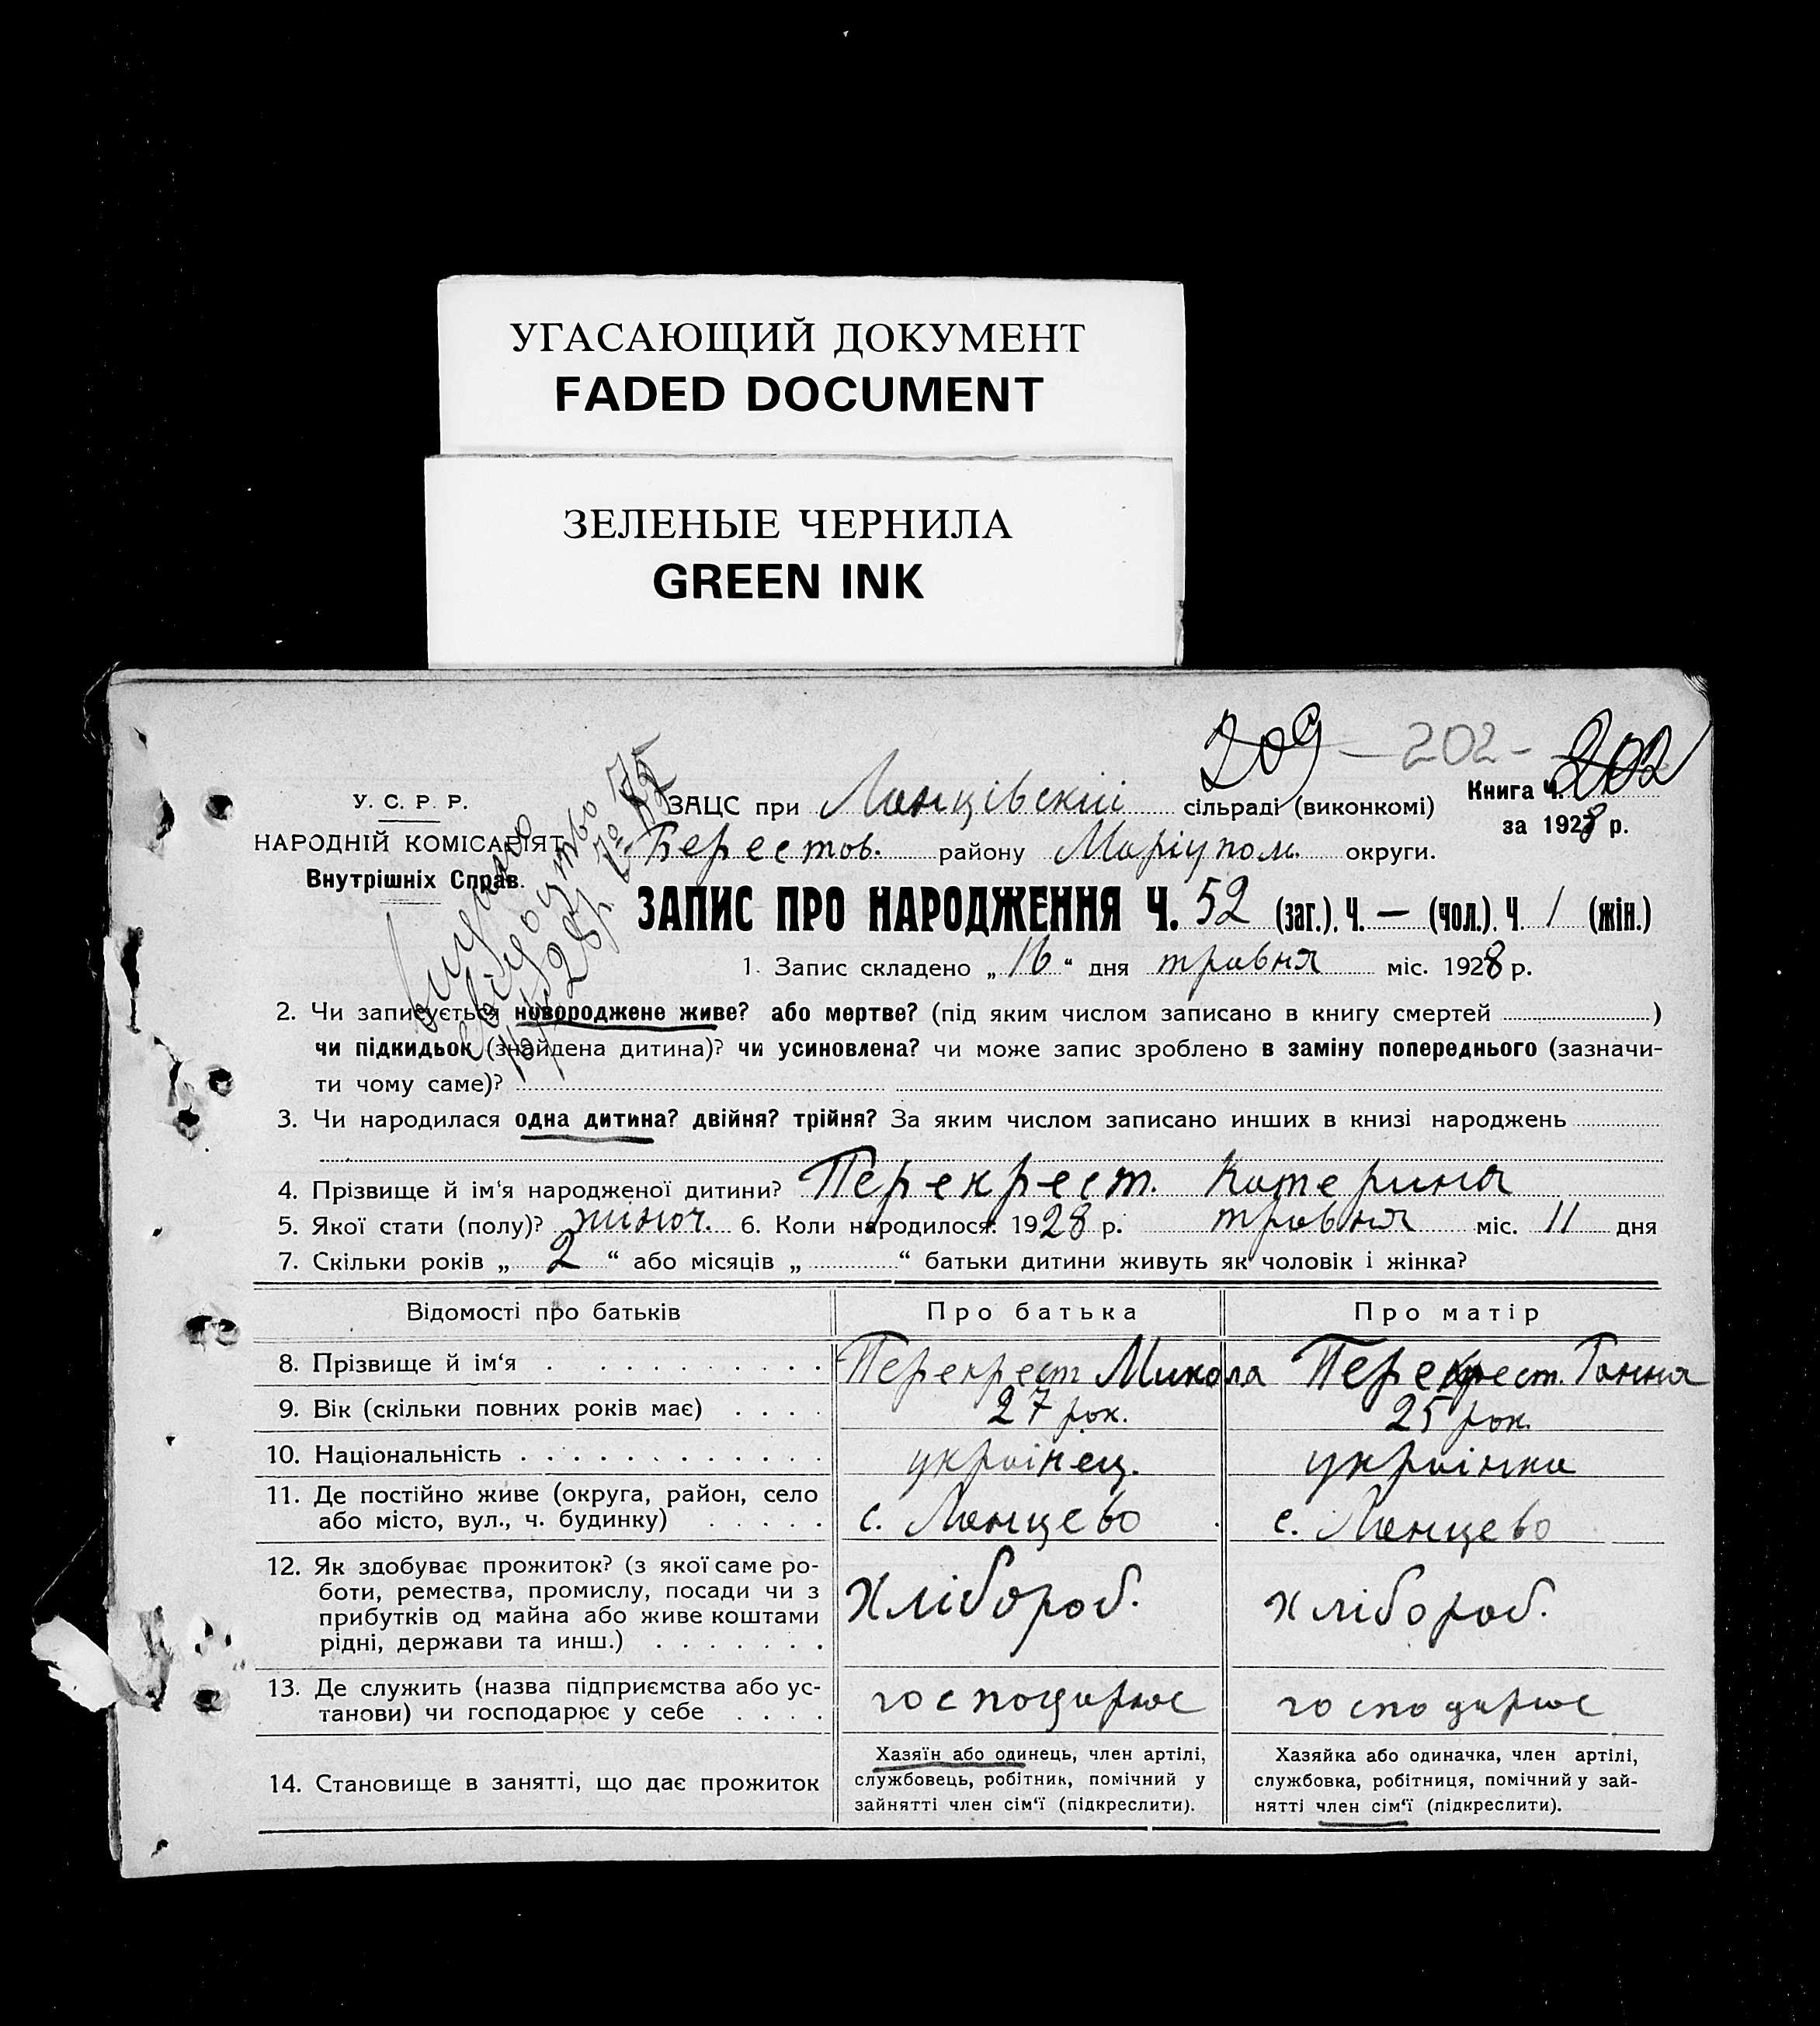 УГАСАЮЩИЙ ДОКУМЕНТ
FADED DOCUMENT
ЗЕЛЕНЫЕ ЧЕРНИЛА
GREEN INK
209 - 202 - 202
У. С. Р. Р.
НАРОДНІЙ КОМІСАРІЯТ
Внутрішніх Справ.
ЗАЦС при Ланцівскій сільраді (виконкомі)
Книга Ч. 202
за 1928 р.
Берестов. району Маріупол. округи.
ЗАПИС ПРО НАРОДЖЕННЯ Ч. 52 (заг.). Ч. — (чол.). Ч. 1 (жін.)
1. Запис складено „16“ дня травня міс. 1928 р.
2. Чи записується новороджене живе? або мертве? (під яким числом записано в книгу смертей )
чи підкидьок (знайдена дитина)? чи усиновлена? чи може запис зроблено в заміну попереднього (зазначи-
ти чому саме)?
3. Чи народилася одна дитина? двійня? трійня? За яким числом записано инших в книзі народжень
4. Прізвище й ім‘я народженої дитини? Перекрест. Катерина
5. Якої стати (полу)? жіноч. 6. Коли народилося: 1928 р. травня міс. 11 дня
7. Скільки років „ 2 “ або місяців „ “ батьки дитини живуть як чоловік і жінка?
Відомості про батьків Про батька Про матір
8. Прізвище й ім‘я Перекрест Микола Перекрест. Ганна
9. Вік (скільки повних років має) 27 рок. 25 рок.
10. Національність українец. українка
11. Де постійно живе (округа, район, село
або місто, вул., ч. будинку) с. Ланцево с. Ланцево
12. Як здобуває прожиток? (з якої саме ро-
боти, ремества, промислу, посади чи з
прибутків од майна або живе коштами
рідні, держави та инш.) Хлібороб. хлібороб.
13. Де служить (назва підприємства або ус-
танови) чи господарює у себе господарює господарює
14. Становище в занятті, що дає прожиток
Хазяїн або одинець, член артілі,
службовець, робітник, помічний у
зайнятті член сім‘ї (підкреслити).
Хазяйка або одиначка, член артілі,
службовка, робітниця, помічний у зай-
нятті член сім‘ї (підкреслити).